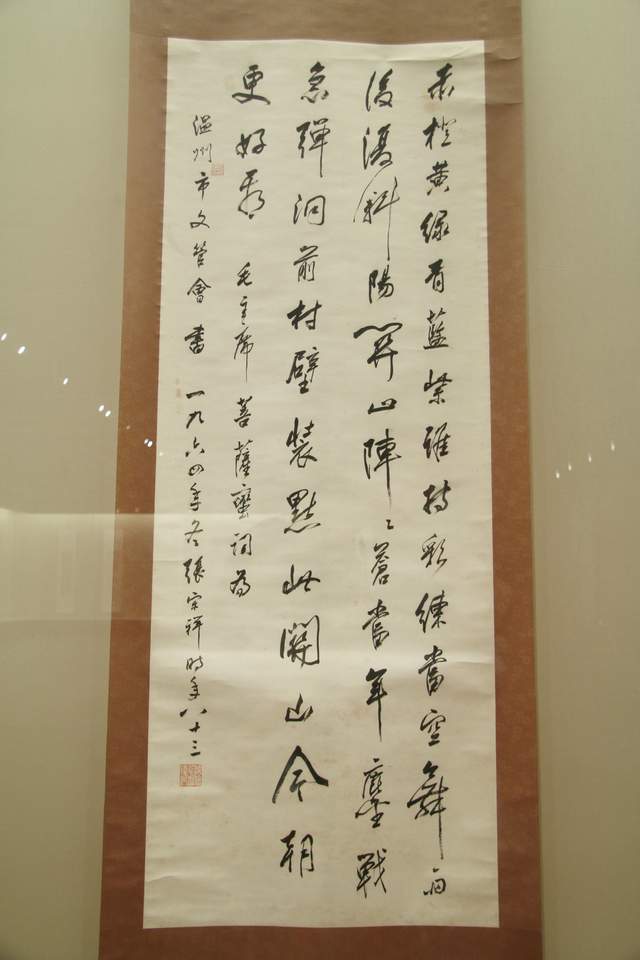 赤橙黄緑青藍紫誰持彩練當空舞雨
後復斜陽關山陣〻蒼當年鏖戰
急彈洞前村壁裝點此關山今朝
更好看 毛主席菩薩蠻詞為
温州市文管會書 一九六四年冬張宗祥時年八十三